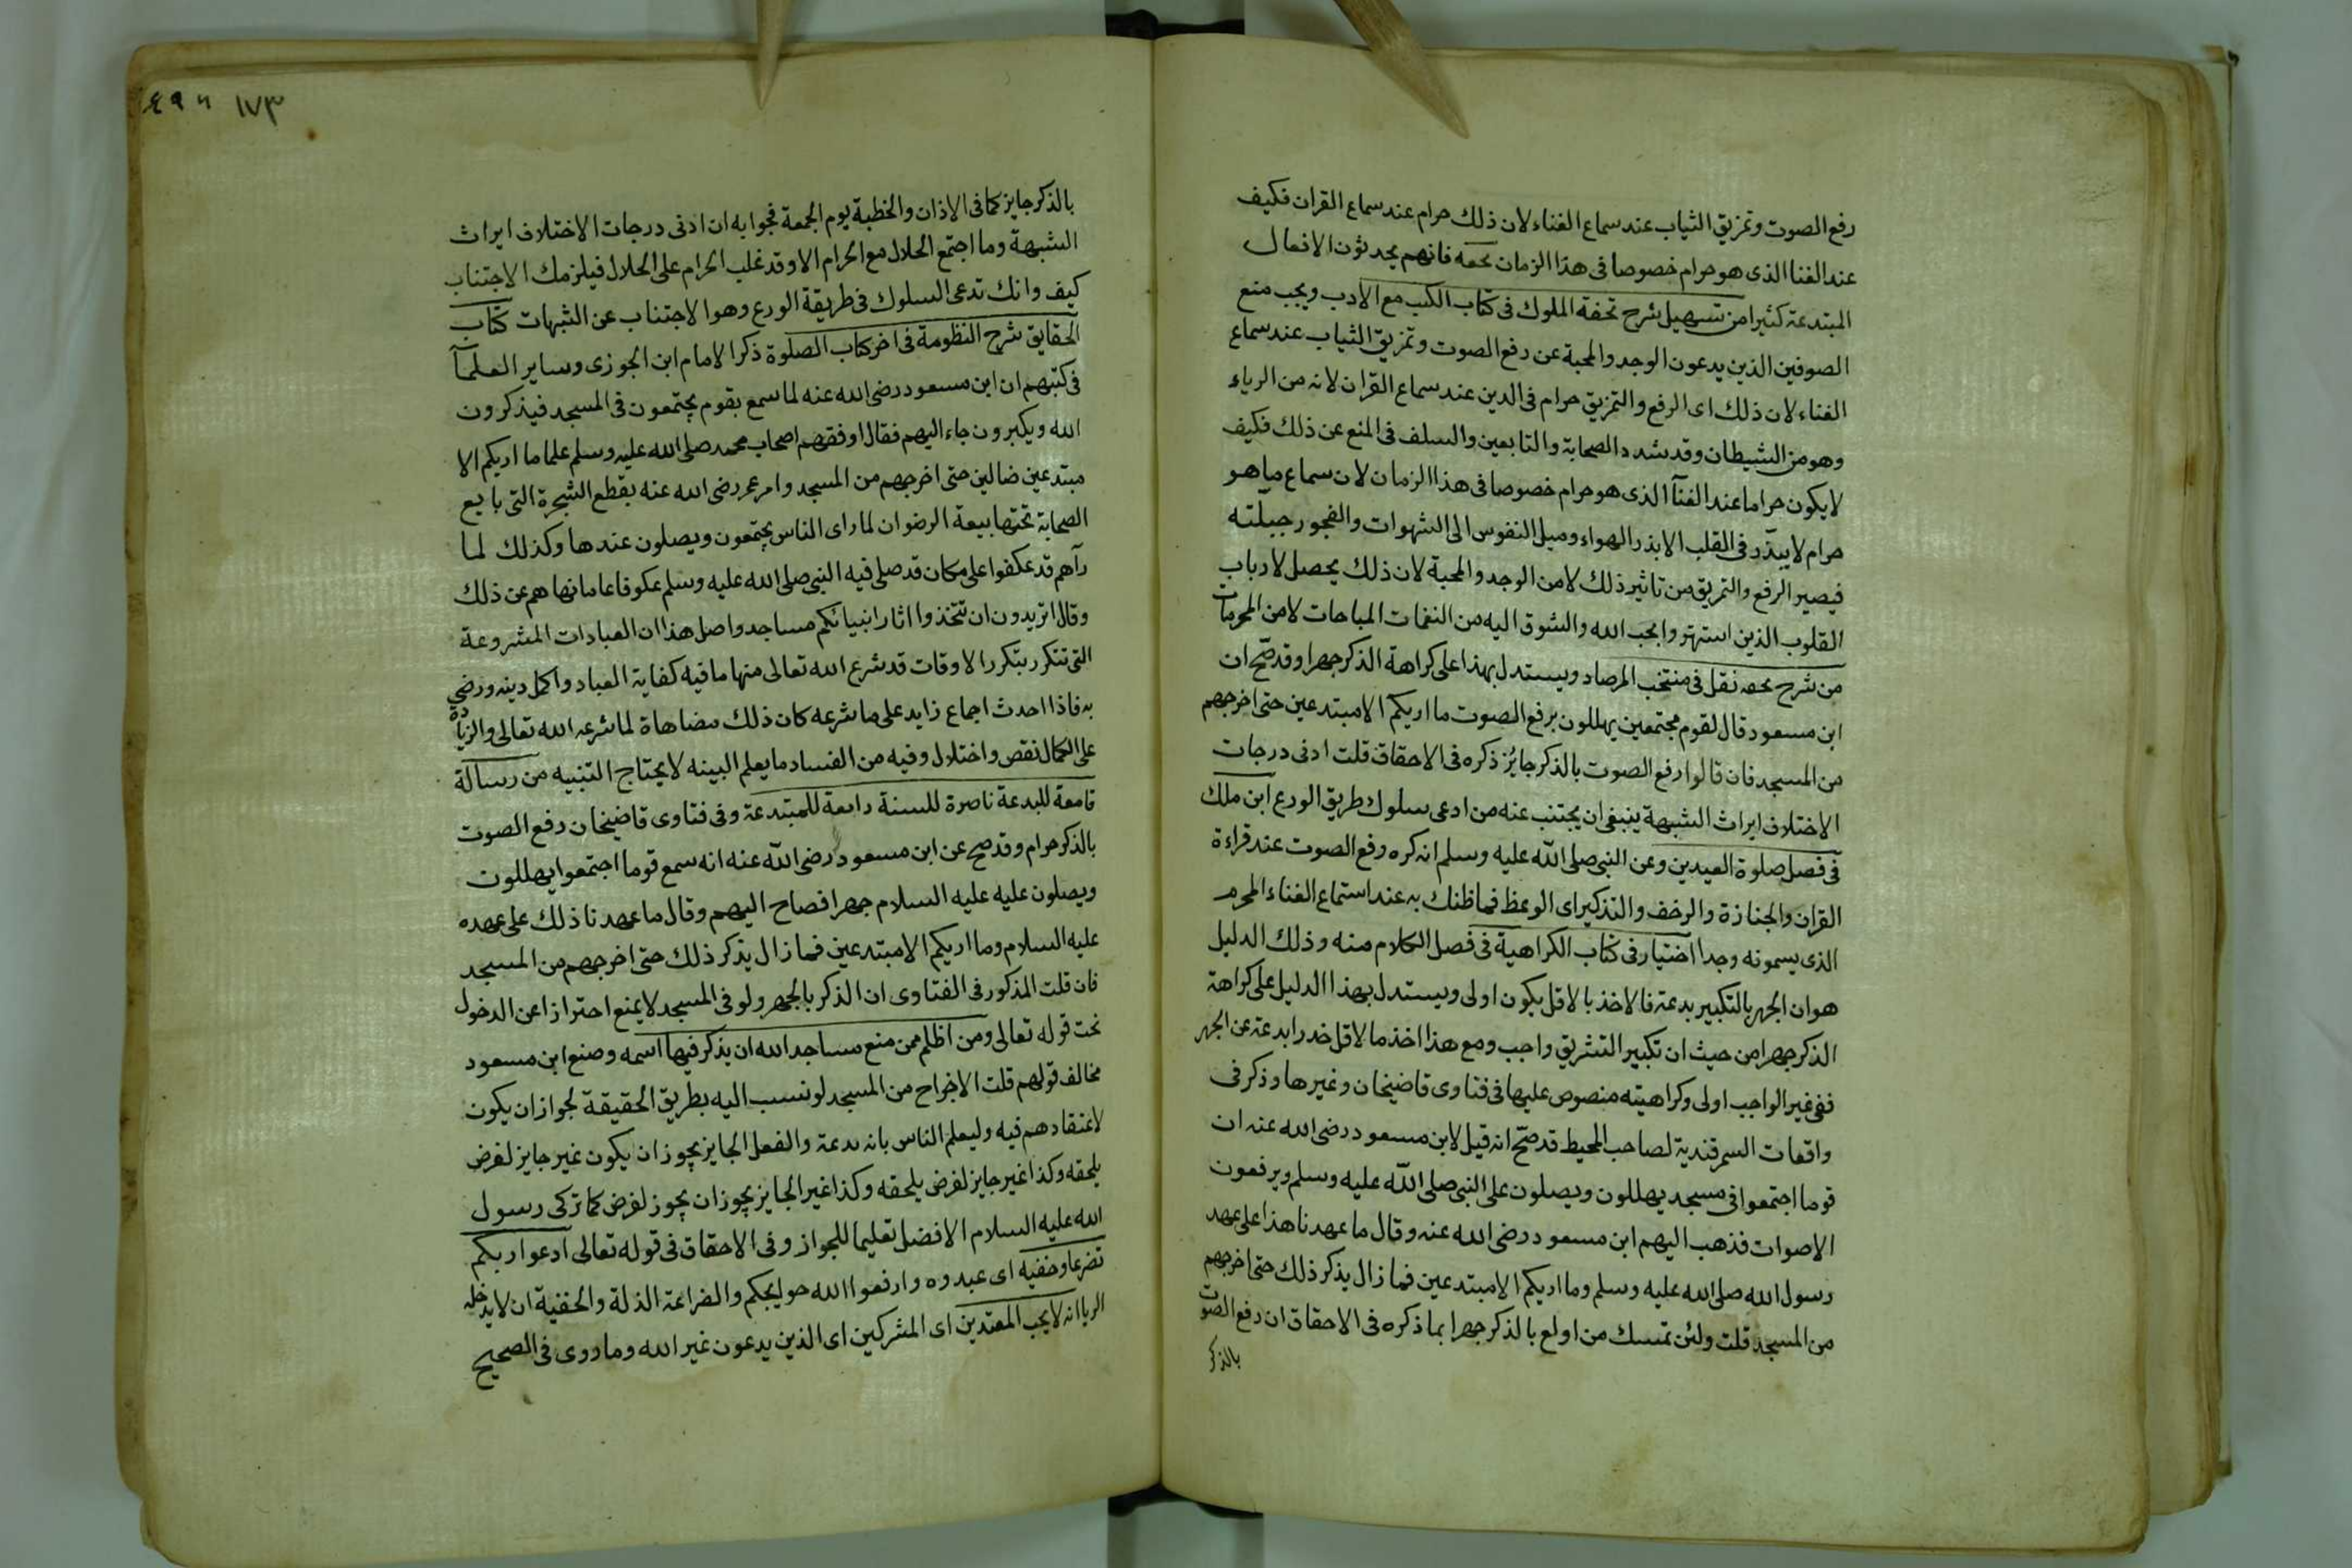 رفع الصوت وتمزيق الثياب عند سماع الغناء لان ذلك حرام عند سماع القران فكيف
عند الغنا الذى هو حرام خصوصا فى هذا الزمان فانهم يحدثون الافعال
المبتدعة كثيرا من تسهيل شرح تحفة الملوك فى كتاب الكسب مع الادب ويجب منع
الصوفين الذين يدعون الوجد والمحبة عن رفع الصوت وتمزيق الثياب عند سماع
الغناء لان ذلك اى الرفع والتمزيق حرام فى الدين عند سماع القران لانه من الرياء
وهو من الشيطان وقد شدد الصحابة والتابعين والسلف فى المنع عن ذلك فكيف
لا يكون حراما عند الغنآ الذى هو حرام خصوصا فى هذا الزمان لان سماع ما هو
حرام لا يبذر فى القلب الا بذر الهواء وميل النفوس الى الشهوات والفجور جبلته
فيصير الرفع والتمزيق من تاثير ذلك لا من الوجد والمحبة لان ذلك يحصل لارباب
القلوب الذين استهتروا بحب الله والشوق اليه من النغمات المباحات لا من المحرمات
من شرح نقل فى منتخب المرصاد ويستدل بهذا على كراهة الذكر جهرا وقد صح ان
ابن مسعود قال لقوم مجتمعين يهللون برفع الصوت ما اريكم الا مبتدعين حتى اخرجهم
من المسجد فان قالوا رفع الصوت بالذكر جائز ذكره فى الاحقاق قلت ادنى درجات
الاختلاف ايراث الشبهة ينبغى ان يجتنب عنه من ادعى سلوك طريق الورع ابن ملك
فى فصل صلوة العيدين وعن النبى صلى الله عليه وسلم انه كره رفع الصوت عند قراءة
القران والجنازة والزحف والتذكير اى الوعظ فما ظنك به عند استماع الغناء المحرم
الذى يسمونه وجدا اختيار فى كتاب الكراهية فى فصل الكلام منه وذلك الدليل
هو ان الجهر بالتكبير بدعة فالاخذ بالاقل يكون اولى ويستدل بهذا الدليل على كراهة
الذكر جهرا من حيث ان تكبير التشريق واجب ومع هذا اخذ مالاقل بدعة عن الجهر
ففى غير الواجب اولى وكراهيته منصوص عليها فى فتاوى قاضيخان وغيرها وذكر فى
واقعات السمرقندية لصاحب المحيط قد صح انه قيل لابن مسعود رضى الله عنه ان
قوما اجتمعوا فى مسجد يهللون ويصلون على النبى صلى الله عليه وسلم ويرفعون
الاصوات فذهب اليهم ابن مسعود رضى الله عنه وقال ما عهدنا هذا على عهد
رسول الله صلى الله عليه وسلم وما اريكم الا مبتدعين فما زال يذكر ذلك حتى اخرجهم
من المسجد قلت ولئن تمسك من اولع بالذكر جهرا بما ذكره فى الاحقاق ان رفع الصوت
بالذكر
٤٩٦ ١٧٣
بالذكر جايز كما فى الاذان والخطبة يوم الجمعة فجوابه ان ادنى درجات الاختلاف ايراث
الشبهة وما اجتمع الحلال مع الحرام الا وقد غلب الحرام على الحلال فيلزمك الاجتناب
كيف وانك تدعى السلوك فى طريقة الورع وهو الاجتناب عن الشبهات كتاب
الحقايق شرح النظومة فى اخر كتاب الصلوة ذكر الامام ابن الجوزى وساير العلمآ
فى كتبهم ان ابن مسعود رضى الله عنه لما سمع بقوم يجتمعون فى المسجد فيذكرون
الله ويكبرون جاء اليهم فقال اوفقهم اصحاب محمد صلى الله عليه وسلم علما ما اريكم الا
مبتدعين ضالين حتى اخرجهم من المسجد وامر عمر رضى الله عنه بقطع الشجرة التى بايع
الصحابة تحتها بيعة الرضوان لما راى الناس يجتمعون ويصلون عندها وكذلك لما
رآهم قد عكفوا على مكان قد صلى فيه النبى صلى الله عليه وسلم عكوفا عاما نهاهم عن ذلك
وقال اتريدون ان تتخذوا اثار انبيائكم مساجد واصل هذا ان العبادات المشروعة
التى تتكرر بتكرر الاوقات قد شرع الله تعالى منها ما فيه كفاية العباد واكمل دينه ورضى
به فاذا احدث اجماع زايد على ما شرعه كان ذلك مضاهاة لما شرعه الله تعالى والزيادة
على الكمال نقص واختلال وفيه من الفساد ما يعلم البينه لا يحتاج التنبيه من رسالة
قامعة للبدعة ناصرة للسنة دامعة للمبتدعة وفى فتاوى قاضيخان رفع الصوت
بالذكر حرام وقد صح عن ابن مسعود رضى الله عنه انه سمع قوما اجتمعوا يهللون
ويصلون عليه عليه السلام جهرا فصاح اليهم وقال ما عهدنا ذلك على عهده
عليه السلام وما اريكم الا مبتدعين فما زال يذكر ذلك حتى اخرجهم من المسجد
فان قلت المذكور فى الفتاوى ان الذكر بالجهر ولو فى المسجد لا يمنع احترازا عن الدخول
تحت قوله تعالى ومن اظلم ممن منع مساجد الله ان يذكر فيها اسمه وصنع ابن مسعود
مخالف قولهم قلت الاخراج من المسجد لو نسب اليه بطريق الحقيقة لجواز ان يكون
لاعتقادهم فيه وليعلم الناس بانه بدعة والفعل الجايز يجوز ان يكون غير جايز لغرض
يلحقه وكذا غير جايز لغرض يلحقه وكذا غير الجايز يجوز ان يجوز لغرض كما تركى رسول
الله عليه السلام الافضل تعليما للجواز وفى الاحقاق فى قوله تعالى ادعوا ربكم
تضرعا وخفيه اى عبدوه وارفعوا الله حوايجكم والضراعة الذلة والخفية ان لا يدخله
الريا انه لا يحب المعتدين اى المشركين اى الذين يدعون غير الله وما روى فى الصحيح